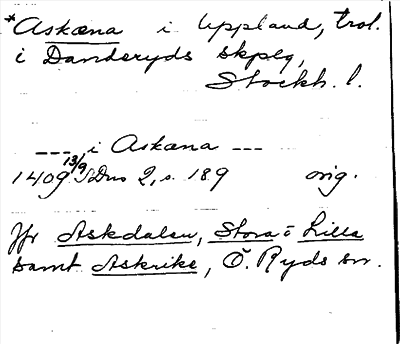 *Askæna i Uppland, trol.
i Danderyds skplg,
Stockh. l.
--- i Askæna ---
1409 13/9 SDns 2, s. 189 orig.
Jfr Askdalen, Stora o Lilla
samt Askrike, Ö. Ryds sn.